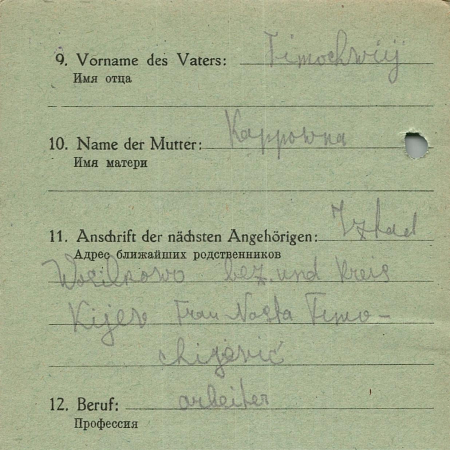 9. Vorname des Vaters: Timochwij
Имя отца
10. Name der Mutter: Kappowna
Имя матери
11. Anschrift der nächsten Angehörigen:
Адрес ближайших родственников
Wosilkowo bez. und Kreis
Kijev Frau Nasta Timo-
chijevič
12. Beruf: arbeiter
Профессия